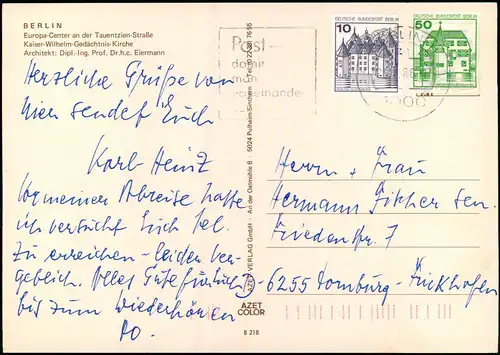 BERLIN
Europa-Center an der Tauentzien-Straße
Kaiser-Wilhelm-Gedächtnis-Kirche
Architekt: Dipl.-Ing. Prof. Dr.h.c. Eiermann
Herzliche Grüße von
hier sendet Euch
Karl-Heinz
Vor meiner Abreise hatte
ich versucht Euch tel.
zu erreichen - leider ver-
geblich. Alles Gute für
bis zum Wiederhören
AZET VERLAG GmbH · An der Oelmühle 8 · 5024 Pulheim-Sinthern
AZET
COLOR
B 218
Post -
damit
man
DEUTSCHE BUNDESPOST BERLIN
10
DEUTSCHE BUNDESPOST BERLIN
50
Herrn + Frau
Hermann sen.
Friedenstr. 7
D-6255 Dornburg-